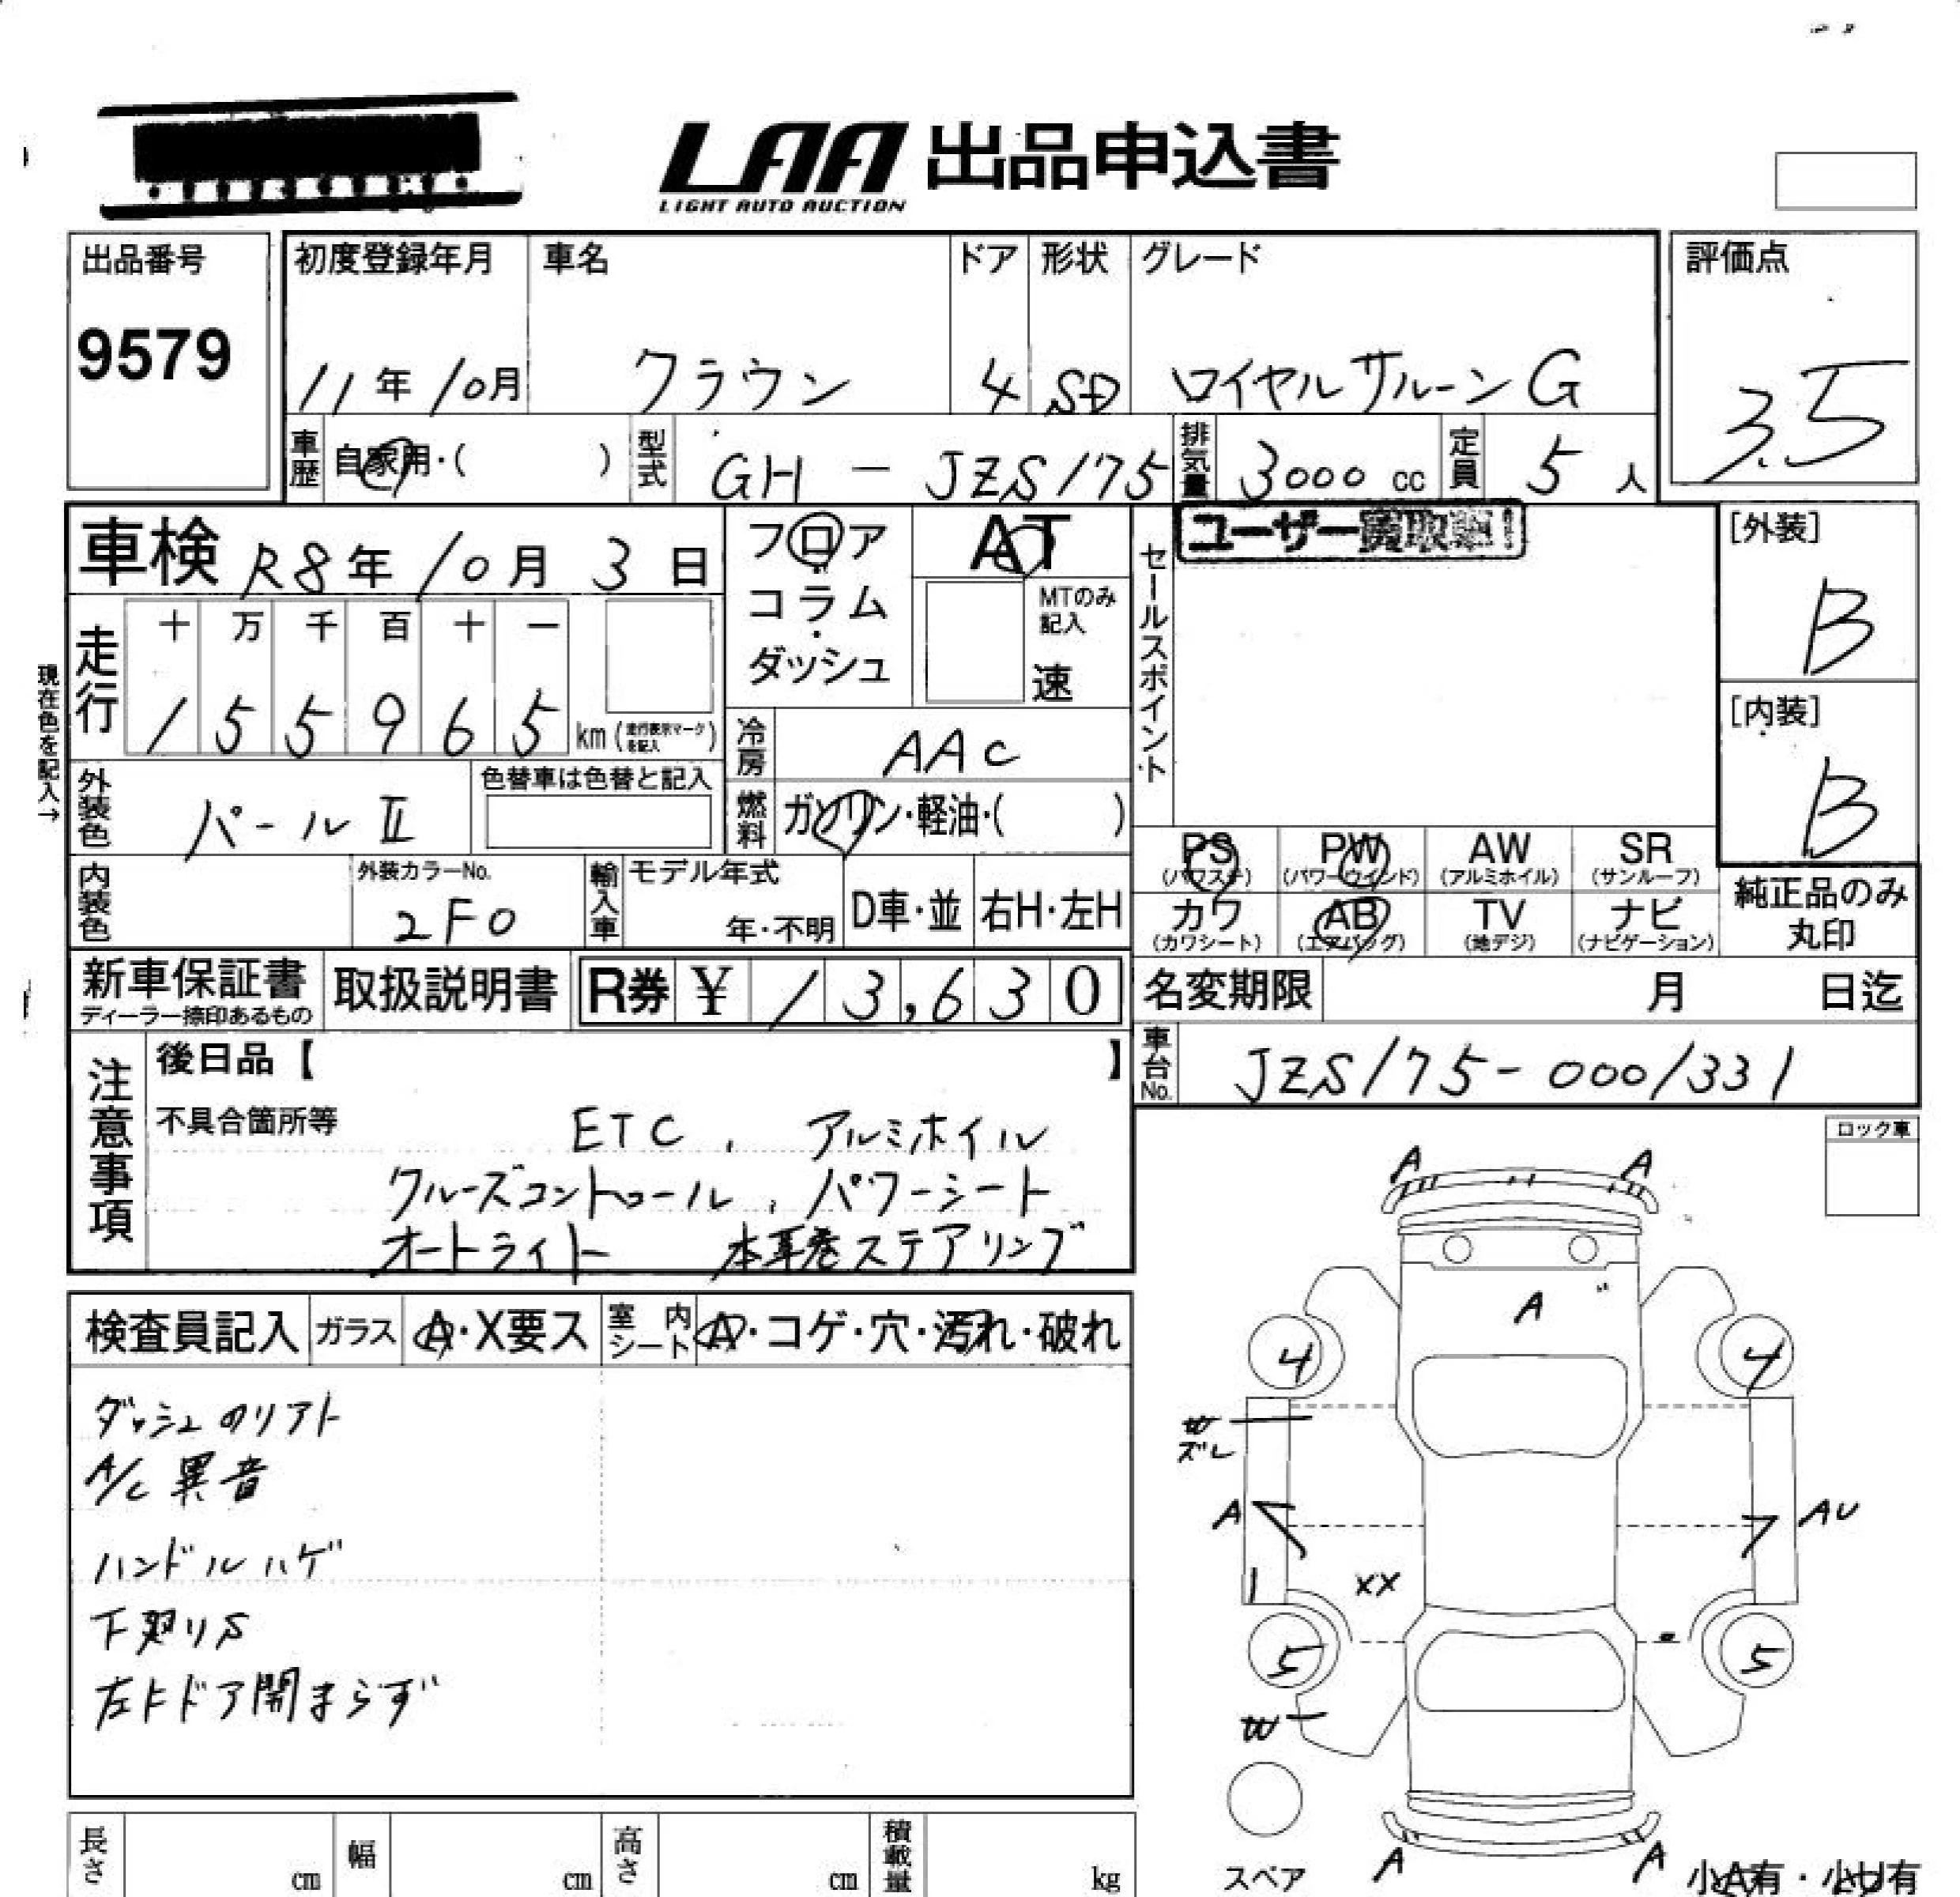 LAA 出品申込書
LIGHT AUTO AUCTION
出品番号
9579
初度登録年月
11年10月
車名
クラウン
ドア
4
形状
SD
グレード
ロイヤルサルーンG
評価点
3.5
車歴
自家用・( )
型式
GH-JZS175
排気量
3000cc
定員
5人
車検 R8年10月3日
フロア
コラム
・
ダッシュ
AT
MTのみ
記入
速
セールスポイント
ユーザー買取車!
[外装]
B
[内装]
B
現在色を記入→
走行
十 万 千 百 十 一
1 5 5 9 6 5 km (走行表示マークを記入)
冷房
AAC
燃料
ガソリン・軽油・( )
外装色
パールⅡ
色替車は色替と記入
内装色
外装カラーNo.
2F0
輸入車
モデル年式
年・不明
D車・並
右H・左H
PS
(パワステ)
PW
(パワーウインド)
AW
(アルミホイル)
SR
(サンルーフ)
カワ
(カワシート)
AB
(エアバッグ)
TV
(地デジ)
ナビ
(ナビゲーション)
純正品のみ
丸印
新車保証書
ディーラー捺印あるもの
取扱説明書
R券 ¥ 13,630
名変期限 月 日迄
車台No.
JZS175-0001331
注意事項
後日品【 】
不具合箇所等
ETC, アルミホイル
クルーズコントロール, パワーシート
オートライト 本革巻ステアリング
ロック車
検査員記入
ガラス
A・X要ス
室内シート
A・コゲ・穴・汚れ・破れ
ダッシュのリアト
A/C異音
ハンドルハゲ
下廻りS
A A
A
4 4
W
ズレ
A
AU
XX
5 5
W
A A
スペア
小A有・小U有
長さ cm
幅 cm
高さ cm
積載量 kg